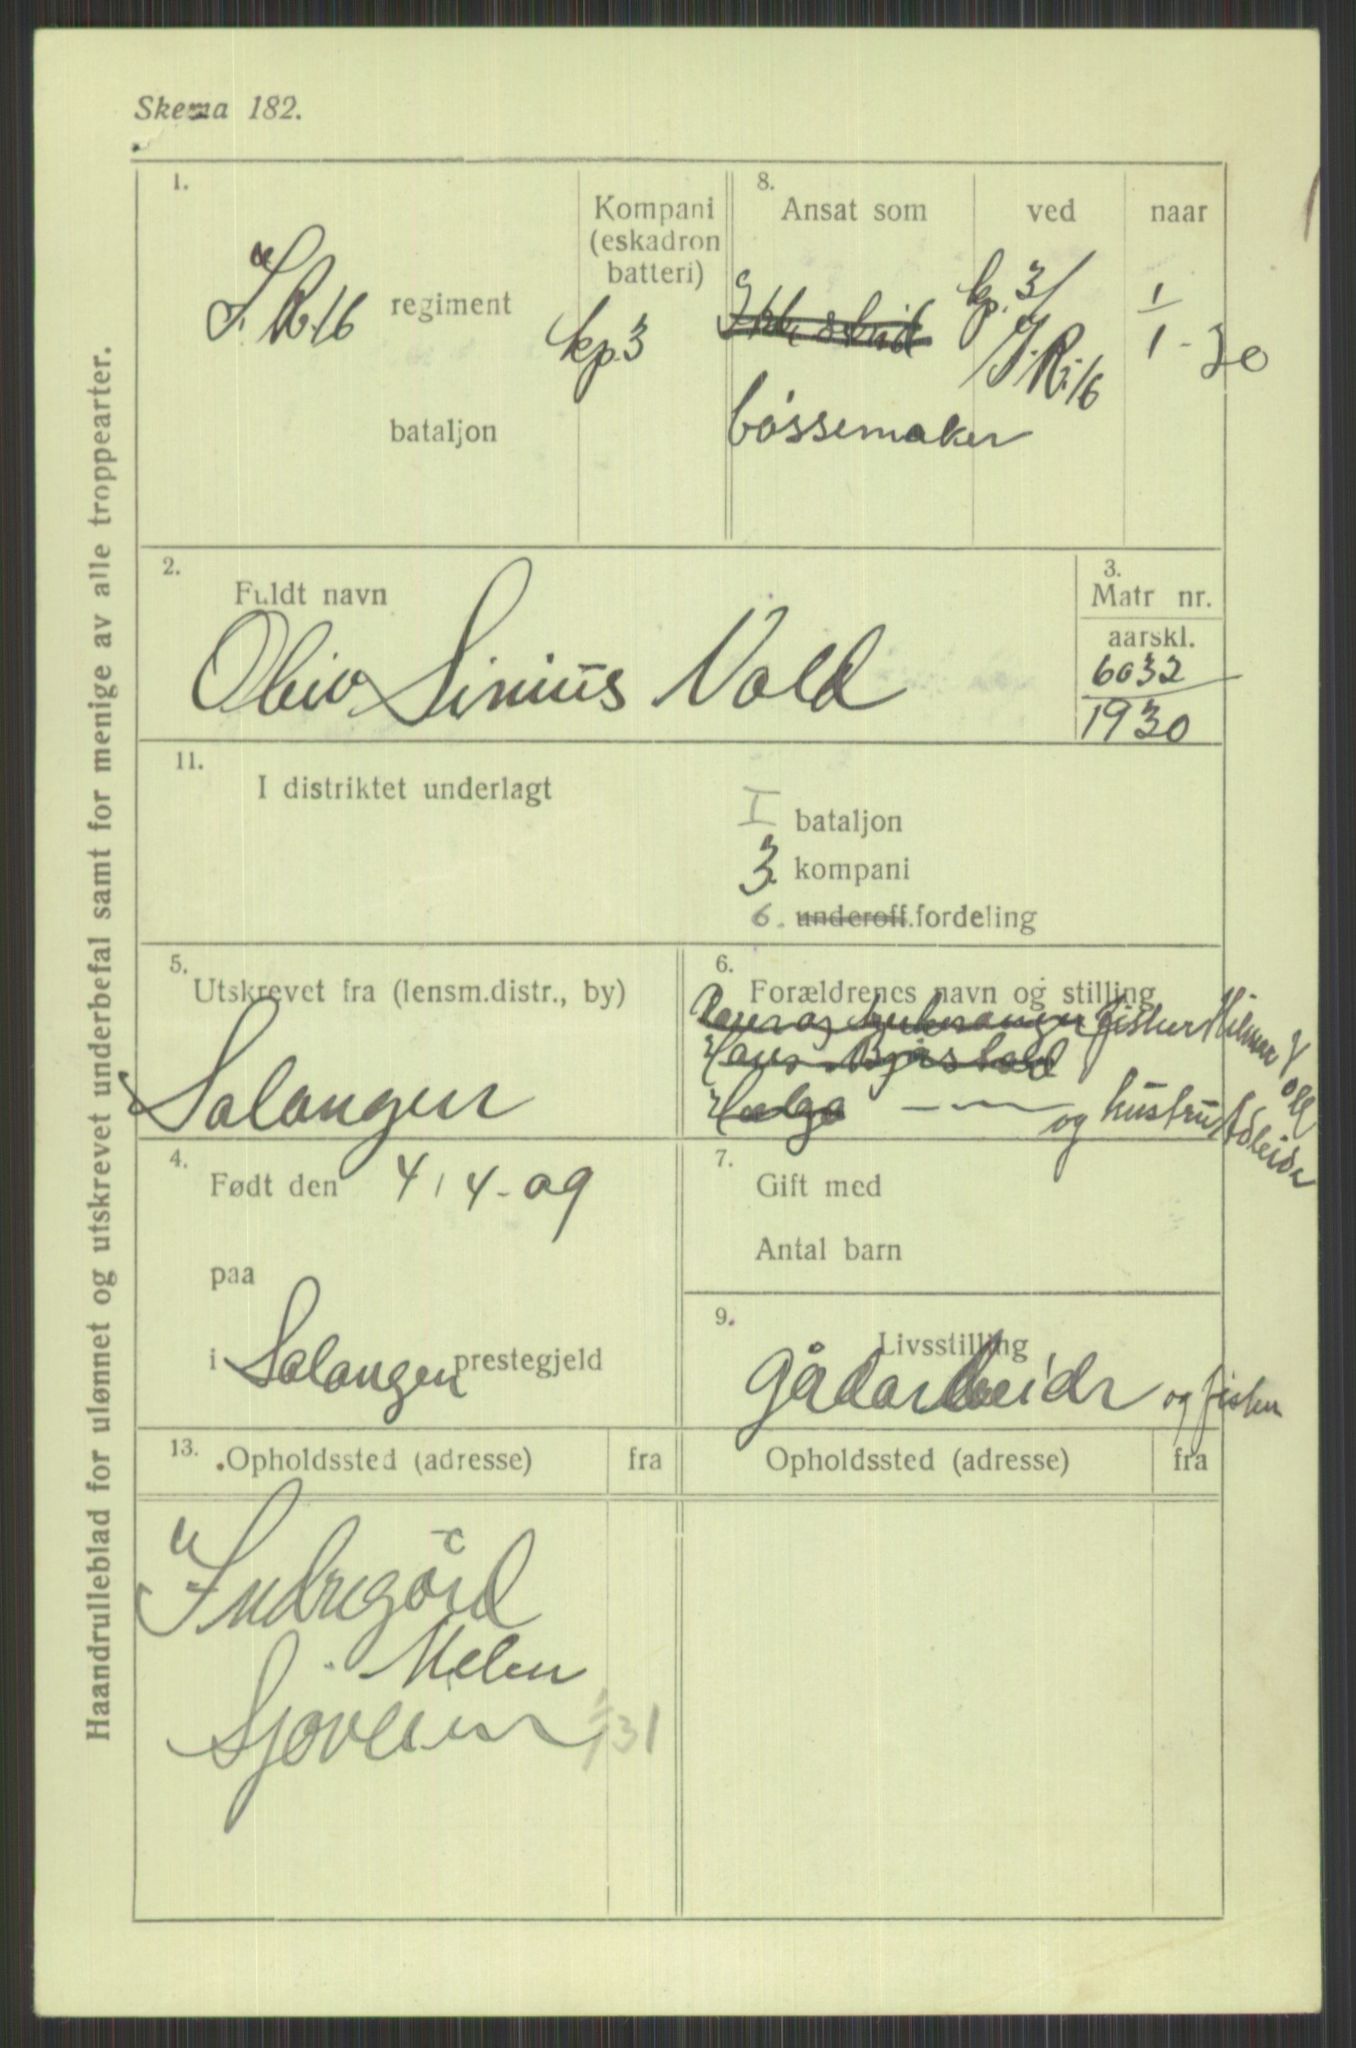 Skema 182.
Haandrulleblad for ulønnet og utskrevet underbefal samt for menige av alle troppearter.
1.
I.R.16 regiment
bataljon
Kompani
(eskadron
batteri)
kp. 3
8.
Ansat som
ved
naar
kp. 3/
I.R.16
1/1-30
bössemaker
2.
Fuldt navn
Sinius Vold
3.
Matr nr.
aarskl.
6032
1930
11.
I distriktet underlagt
I bataljon
3 kompani
6. underoff.fordeling
5.
Utskrevet fra (lensm.distr., by)
Salangen
6.
Forældrenes navn og stilling
fisker Hilmar Voll
Hans
Helga — " — og hustru
4.
Født den 4/4-09
paa
i Salangen prestegjeld
7.
Gift med
Antal barn
9.
Livsstilling
Gårdarbeidr og fisker
13.
Opholdssted (adresse)
fra
Opholdssted (adresse)
fra
Indregård
Melen
Sjøveien
31